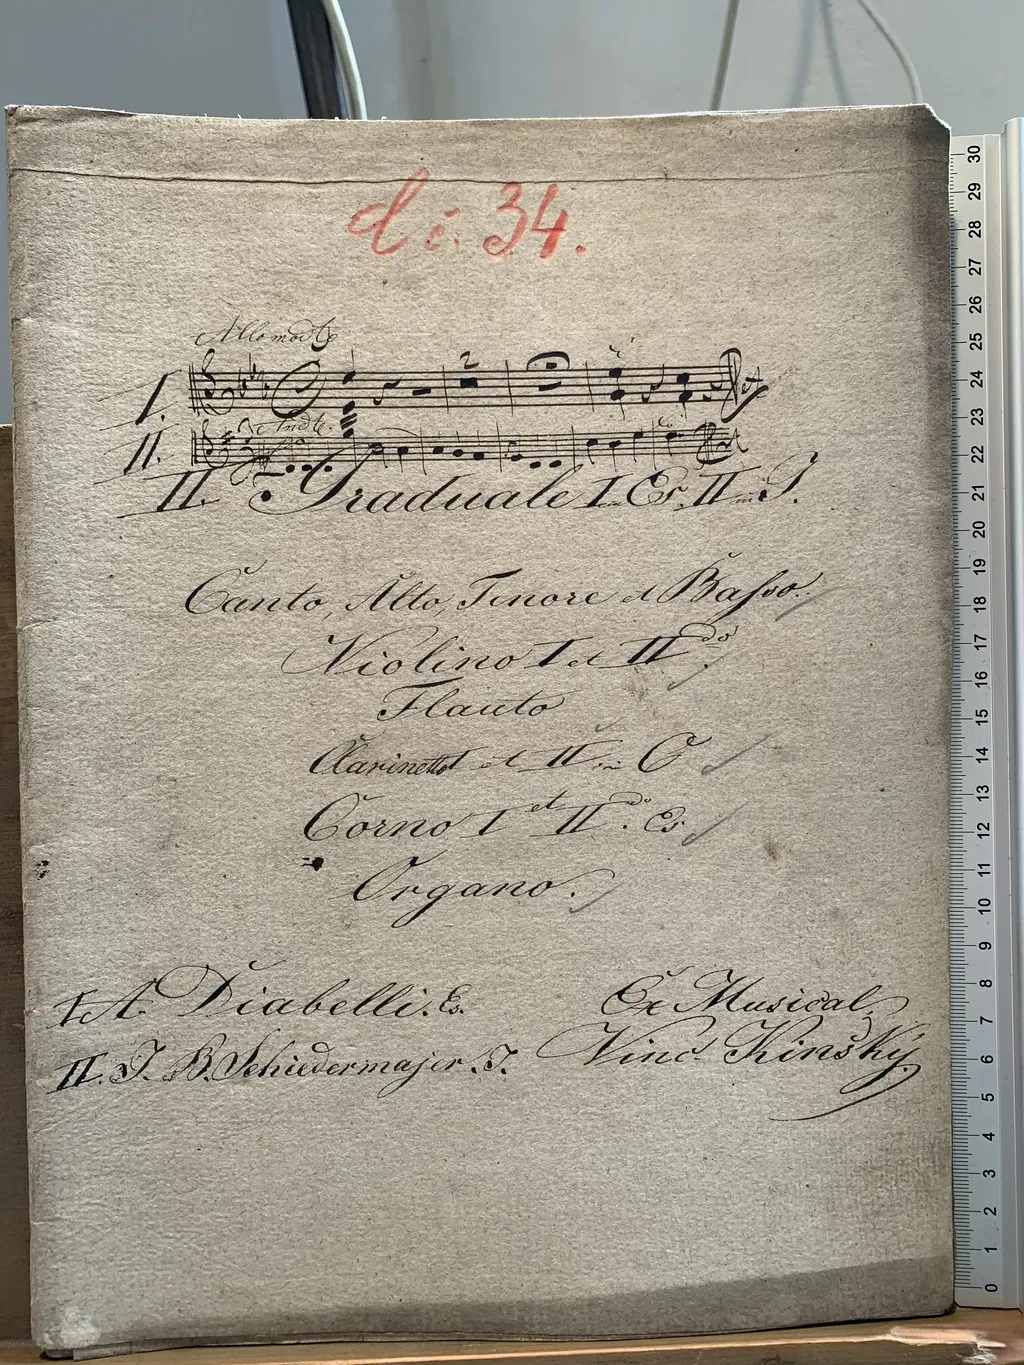 d č. 34.
Allo modto
I.
Andte.
II.
II. Graduale I in Es. II in F.
Canto, Alto, Tenore et Basso.
Violino I et II do.
Flauto
Clarinetto I et II in C
Corno I et II do. Es
Organo.
I A. Diabelli. Es.
II. J. B. Schiedermajer. F.
Ex Musical.
Vinc. Kinský.
30
29
28
27
26
25
24
23
22
21
20
19
18
17
16
15
14
13
12
11
10
9
8
7
6
5
4
3
2
1
0